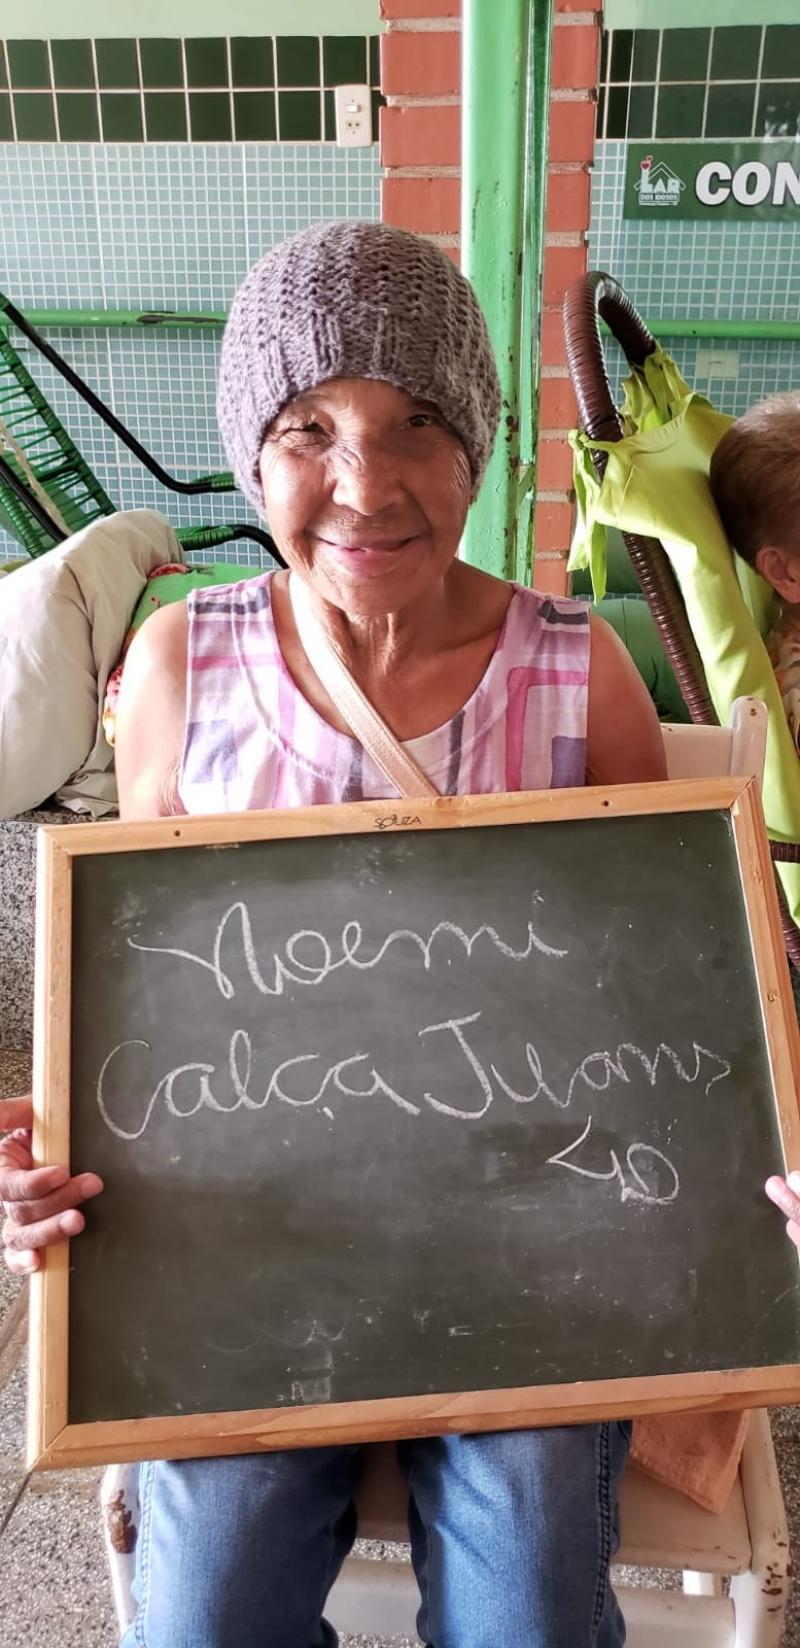 LAR
DOS IDOSOS
CON
SOUZA
Noemi
Calca Jeans
40